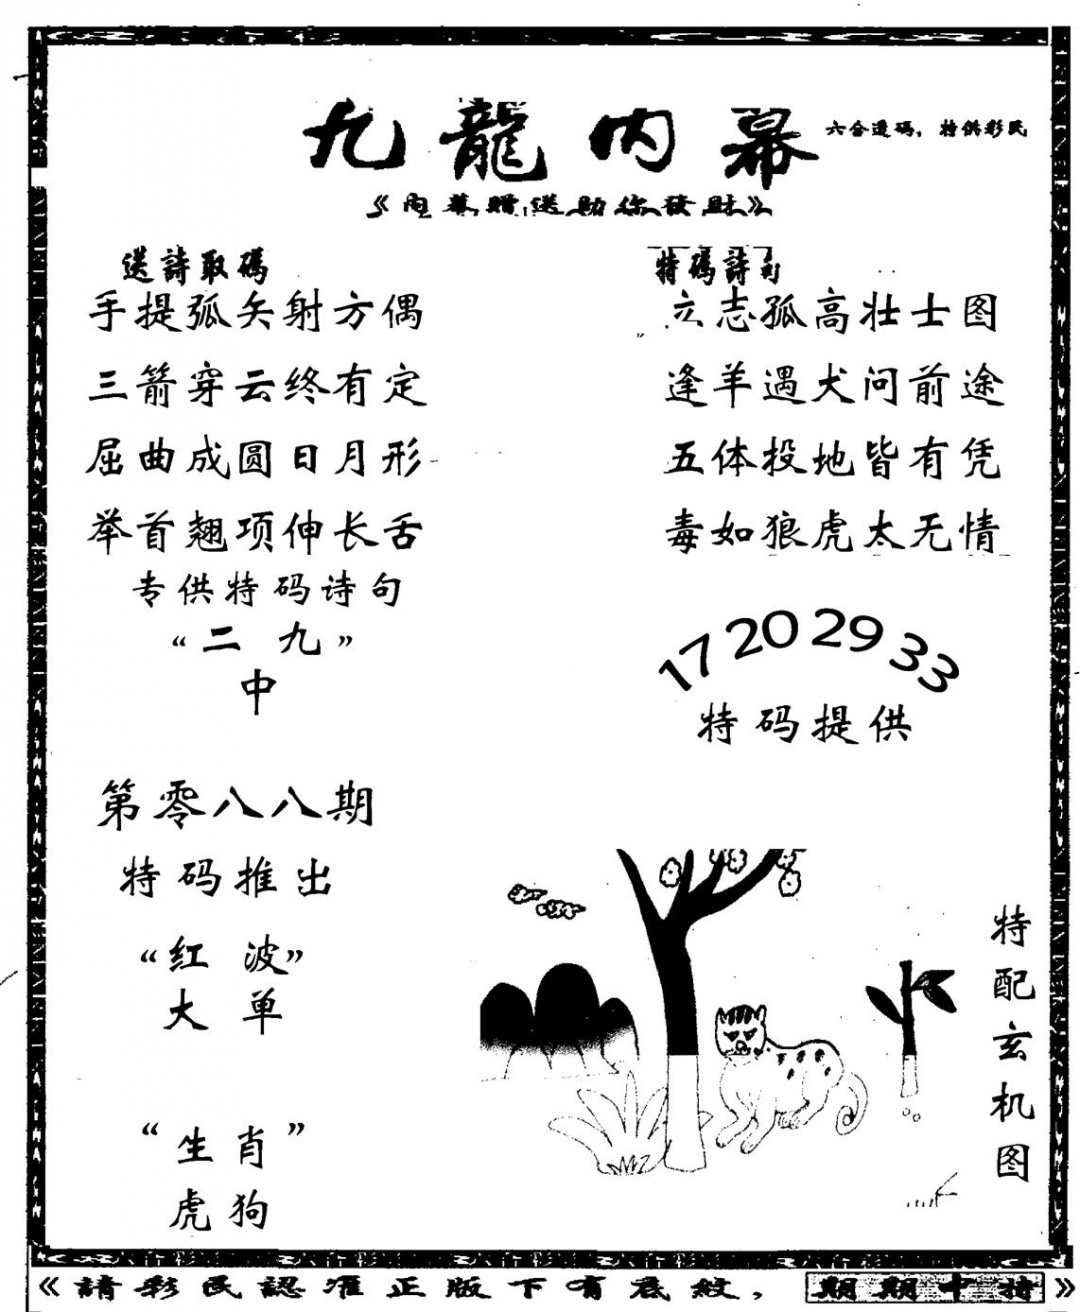 九龍内幕
六合透码，特供彩民
《内幕赠送助你發財》
送詩取碼
手提弧矢射方偶
三箭穿云终有定
屈曲成圆日月形
举首翘项伸长舌
专供特码诗句
“二 九”
中
第零八八期
特码推出
“红 波”
大 单
“生 肖”
虎 狗
特碼詩句
立志孤高壮士图
逢羊遇犬问前途
五体投地皆有凭
毒如狼虎太无情
17 20 29 33
特码提供
特配玄机图
《請彩民認准正版下有底紋，期期中特》